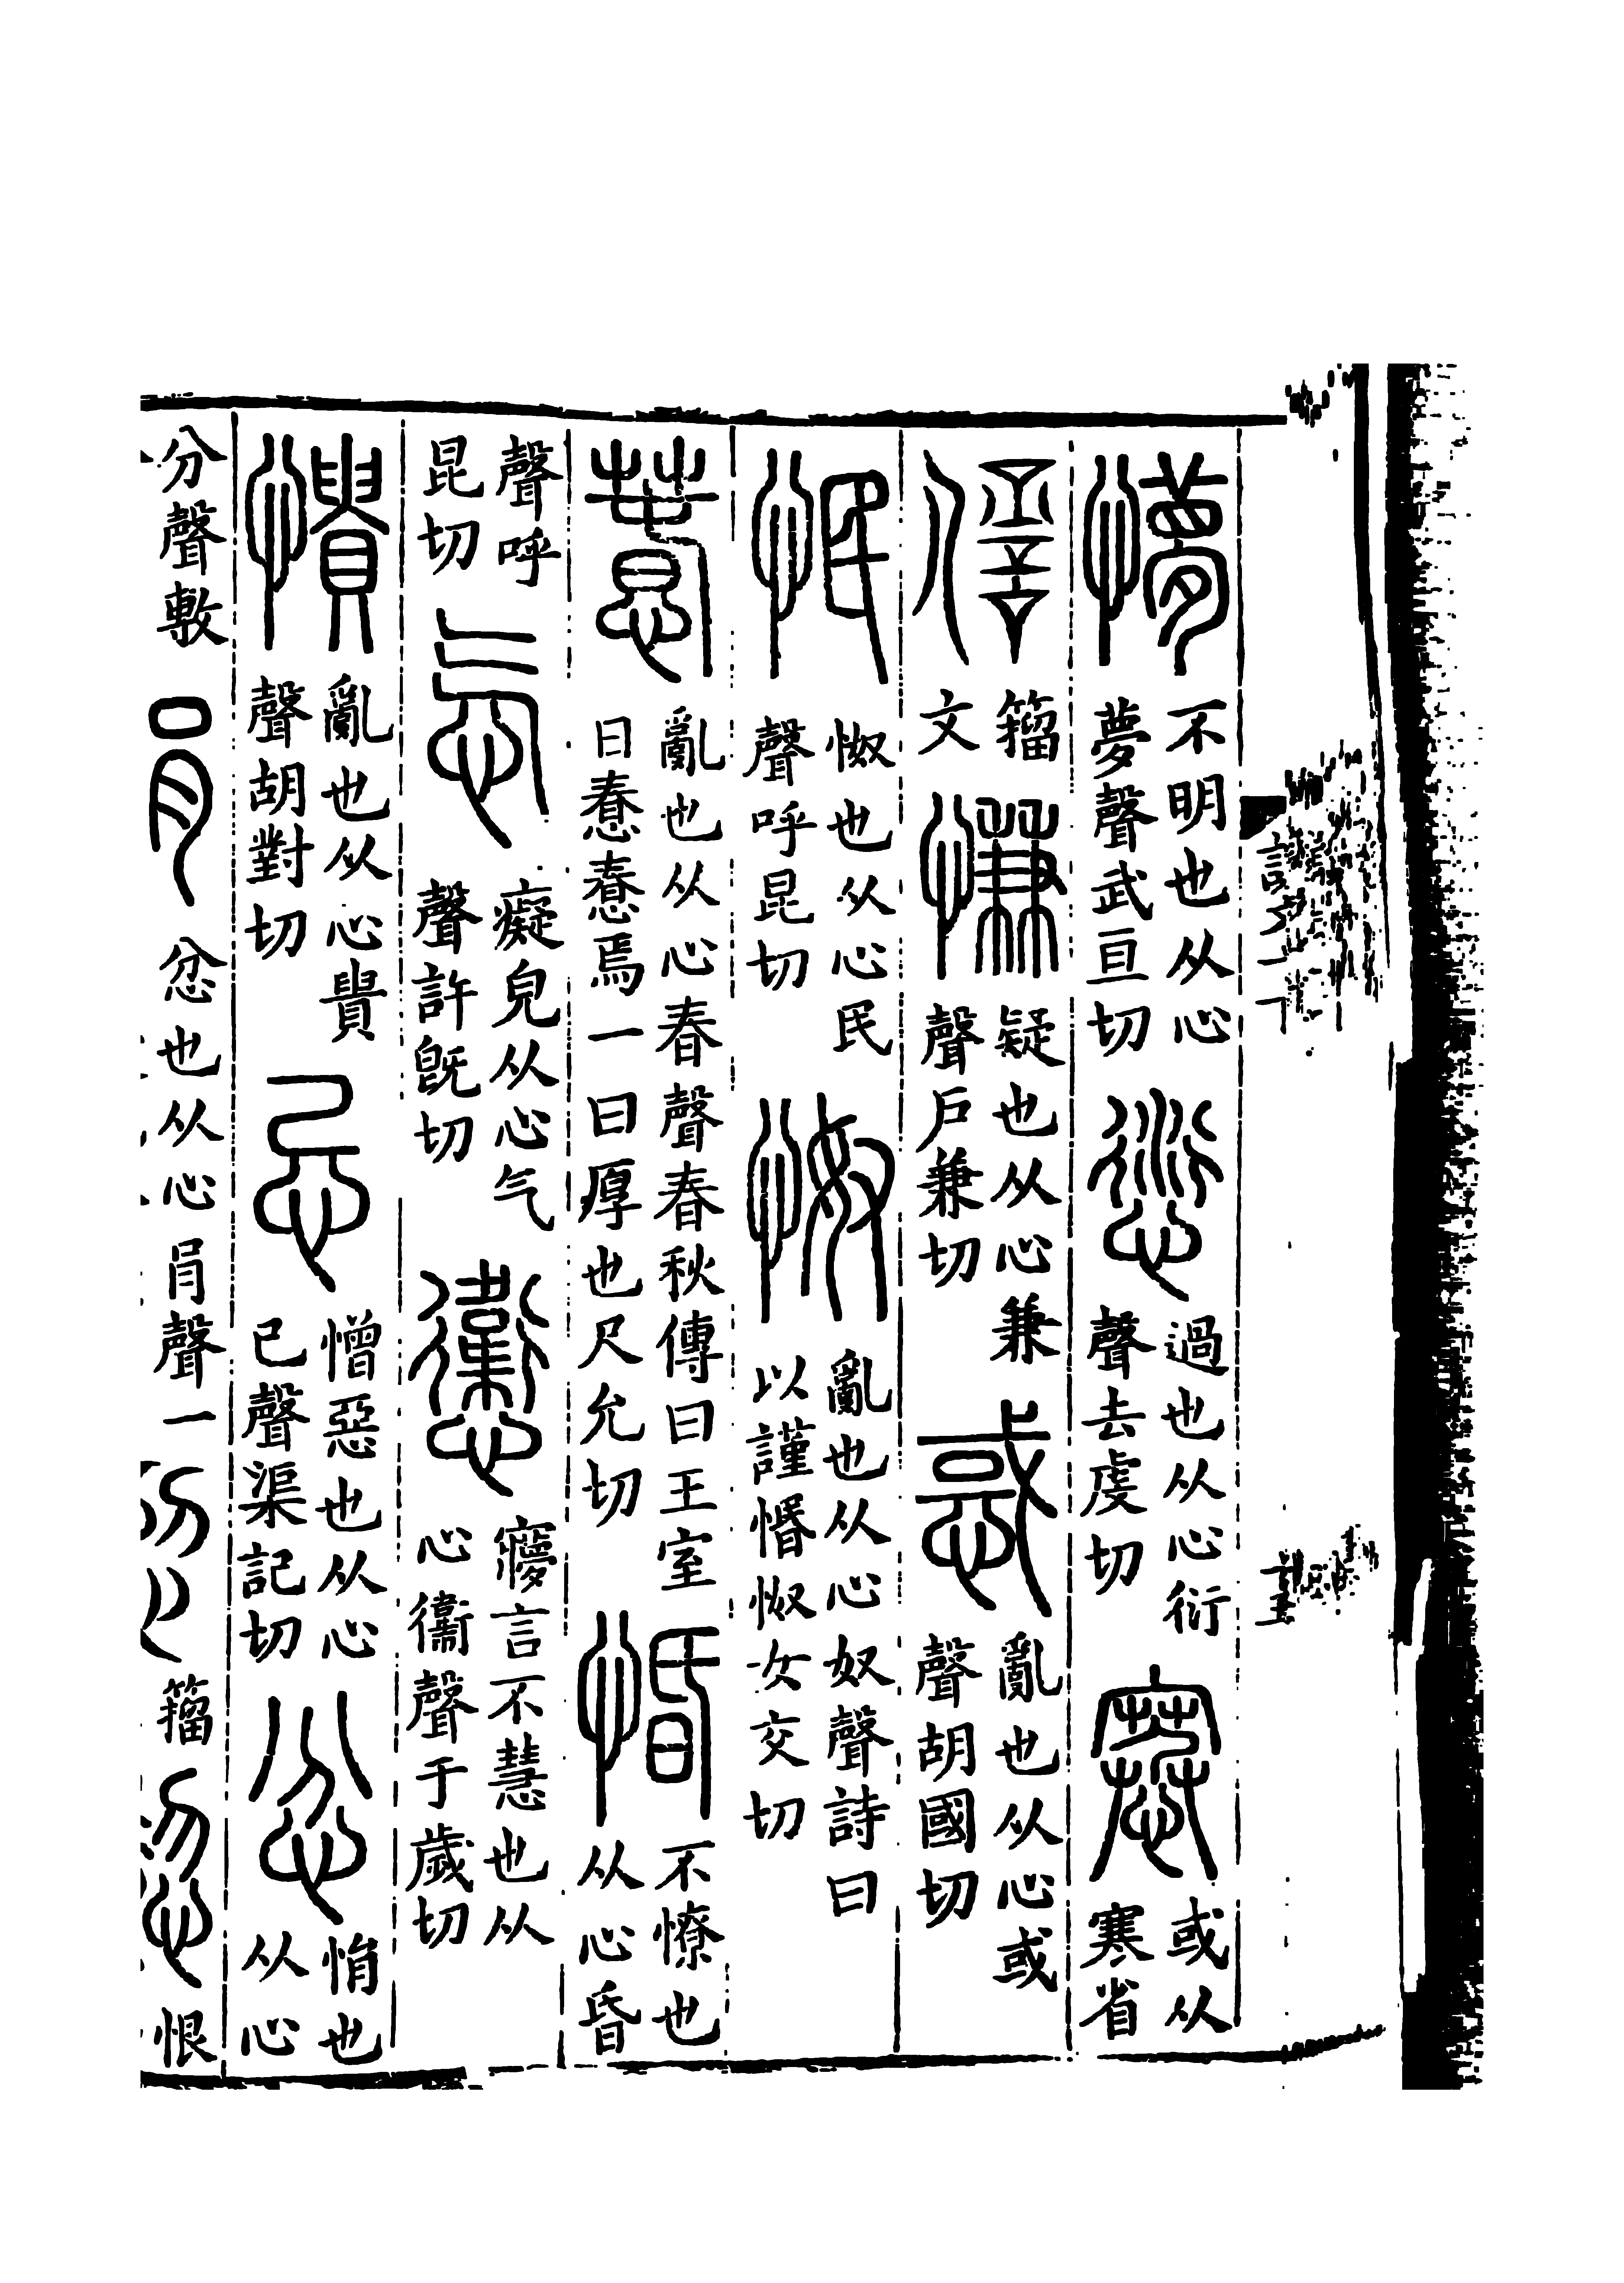 㦟不明也从心夢聲武亘切愆過也从心衍聲去虔切𡫼或从寒省
𠎝籀文慊疑也从心兼聲户兼切惑亂也从心或聲胡國切
怋怓也从心民聲呼昆切怓亂也从心奴聲詩曰以謹惽怓女交切
惷亂也从心春聲春秋傳曰王室曰惷惷焉一曰厚也尺允切惛不憭也从心昏
聲呼昆切忥癡皃从心气聲許旣切𢣶㝱言不慧也从心衞聲于歲切
憒亂也从心貴聲胡對切忌憎惡也从心己聲渠記切忿悁也从心
分聲敷悁忿也从心肙聲一籀恨